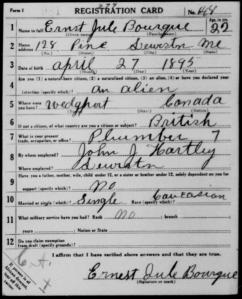 Form 1
REGISTRATION CARD
No. 468
1 Name in full Ernst Jule Bourque
Age, in yrs. 22
2 128 Pine Lewiston Me
3 Date of birth april 27 1895
4 Are you (1) a natural-born citizen, (2) a naturalized citizen, (3) an alien, (4) or have you declared your
intention (specify which)? an alien
5 Where were you born? Wedgport Canada
6 If not a citizen, of what country are you a citizen or subject? British
7 What is your present trade, occupation, or office? Plumber 7
8 By whom employed? John J Hartley
Where employed? Lewistn
9 Have you a father, mother, wife, child under 12, or a sister or brother under 12, solely dependent on you for
support (specify which)? No
10 Married or single (which)? Single Race (specify which)? Caucasian
11 What military service have you had? Rank No branch
years Nation or State
12 Do you claim exemption from draft (specify grounds)?
I affirm that I have verified above answers and that they are true.
Ernest Jule Bourque
(Signature or mark)